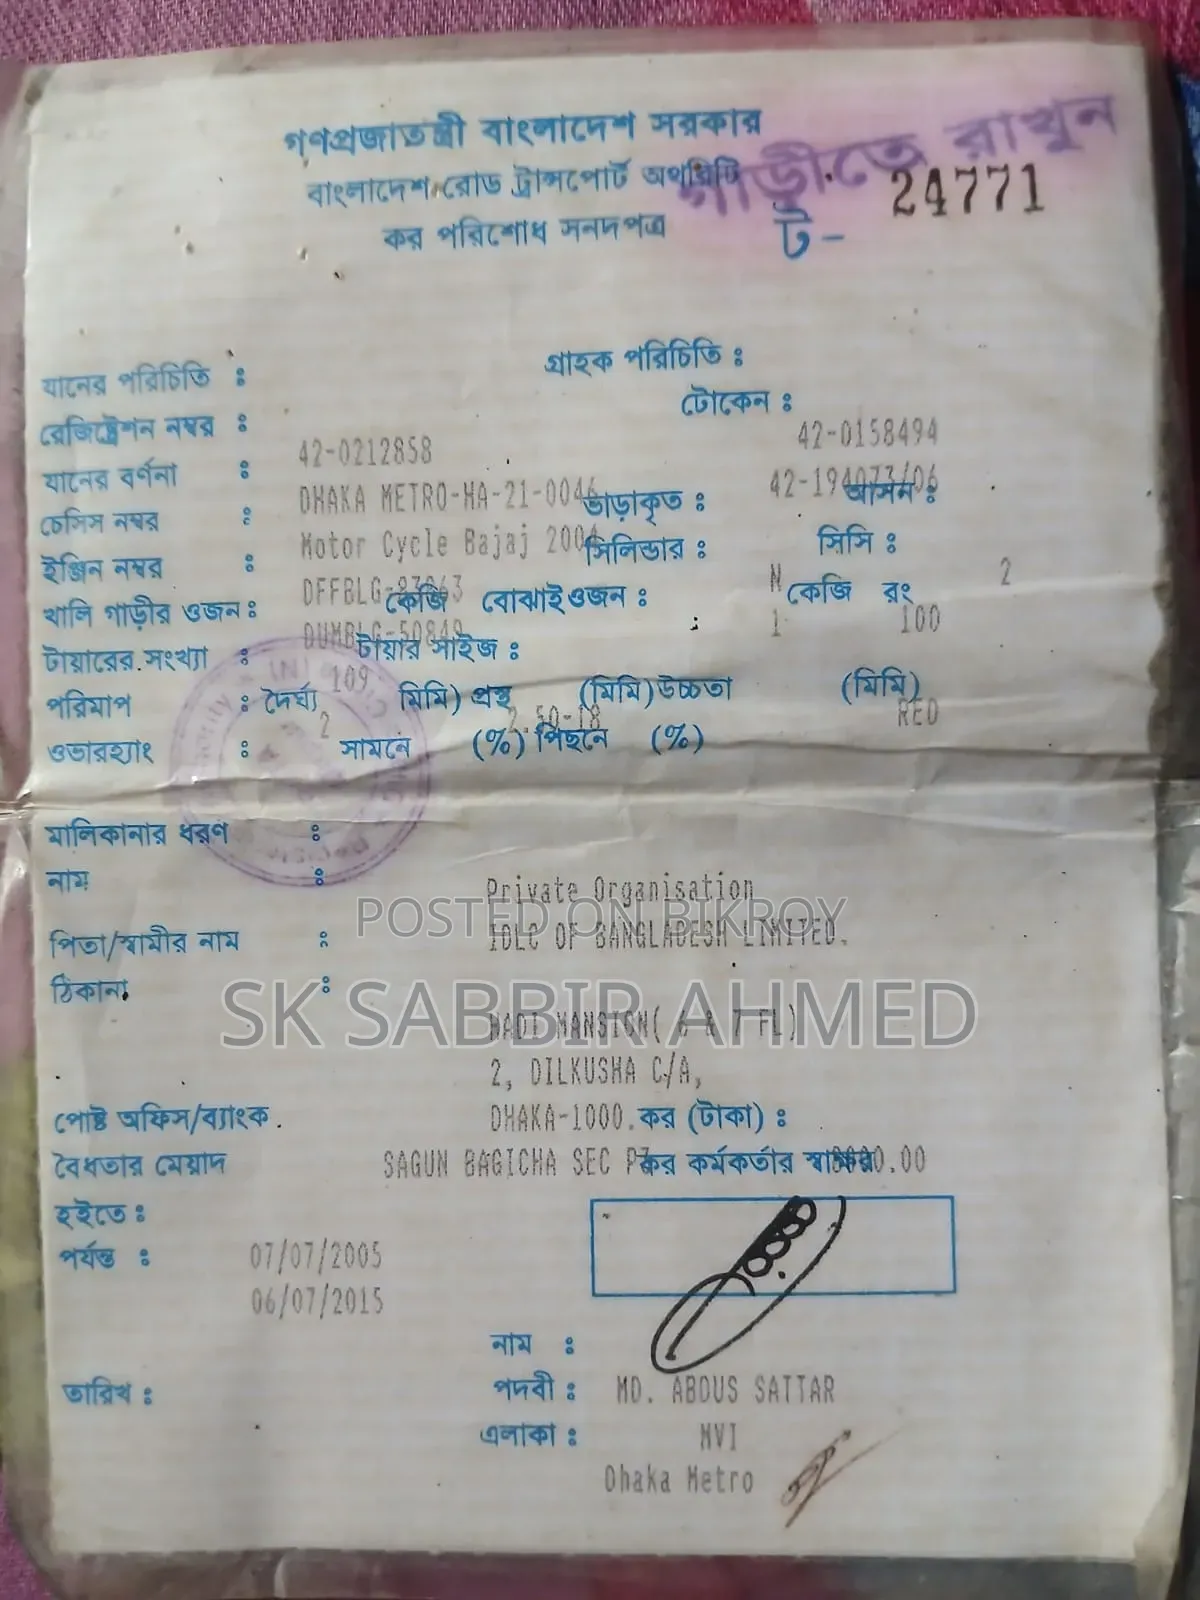 গণপ্রজাতন্ত্রী বাংলাদেশ সরকার
বাংলাদেশ রোড ট্রান্সপোর্ট অথরিটি
গাড়ীতে রাখুন
কর পরিশোধ সনদপত্র
ট- 24771
যানের পরিচিতি :
গ্রাহক পরিচিতি :
রেজিষ্ট্রেশন নম্বর :
টোকেন :
42-0212858
42-0158494
যানের বর্ণনা :
DHAKA METRO-HA-21-0046
42-194073/06
চেসিস নম্বর :
ভাড়াকৃত :
আসন :
Motor Cycle Bajaj 2004
ইঞ্জিন নম্বর :
সিলিন্ডার :
সিসি :
DFFBLG-83063
N
2
খালি গাড়ীর ওজন :
কেজি বোঝাই ওজন :
কেজি রং
DUMBLG-50849
1
100
টায়ারের সংখ্যা :
টায়ার সাইজ :
109
পরিমাপ : দৈর্ঘ্য মিমি) প্রস্থ (মিমি) উচ্চতা (মিমি)
2
2.50-18
RED
ওভারহ্যাং : সামনে (%) পিছনে (%)
মালিকানার ধরণ :
নাম :
Private Organisation
POSTED ON BIKROY
IDLC OF BANGLADESH LIMITED.
পিতা/স্বামীর নাম :
ঠিকানা :
SK SABBIR AHMED
HADI MANSION( 6 & 7 FL)
2, DILKUSHA C/A,
পোষ্ট অফিস/ব্যাংক
DHAKA-1000.
কর (টাকা) :
বৈধতার মেয়াদ
SAGUN BAGICHA SEC
কর কর্মকর্তার স্বাক্ষর
হইতে :
পর্যন্ত :
07/07/2005
06/07/2015
নাম :
তারিখ :
পদবী : MD. ABDUS SATTAR
এলাকা : MVI
Dhaka Metro